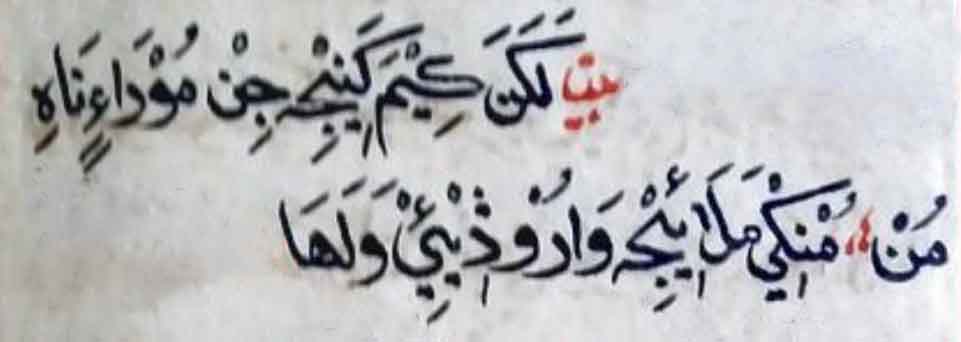 بيت لَكَنَ كِيْمَ كَيِنْجِهِ جِنْ مُوْدَاءٍ نَاهِ
مُنْ ،، مُنْكِيْ مَلَاإِ يَنْجِهِ وَارُوْ ذِيْنِئْ وَلَهَا